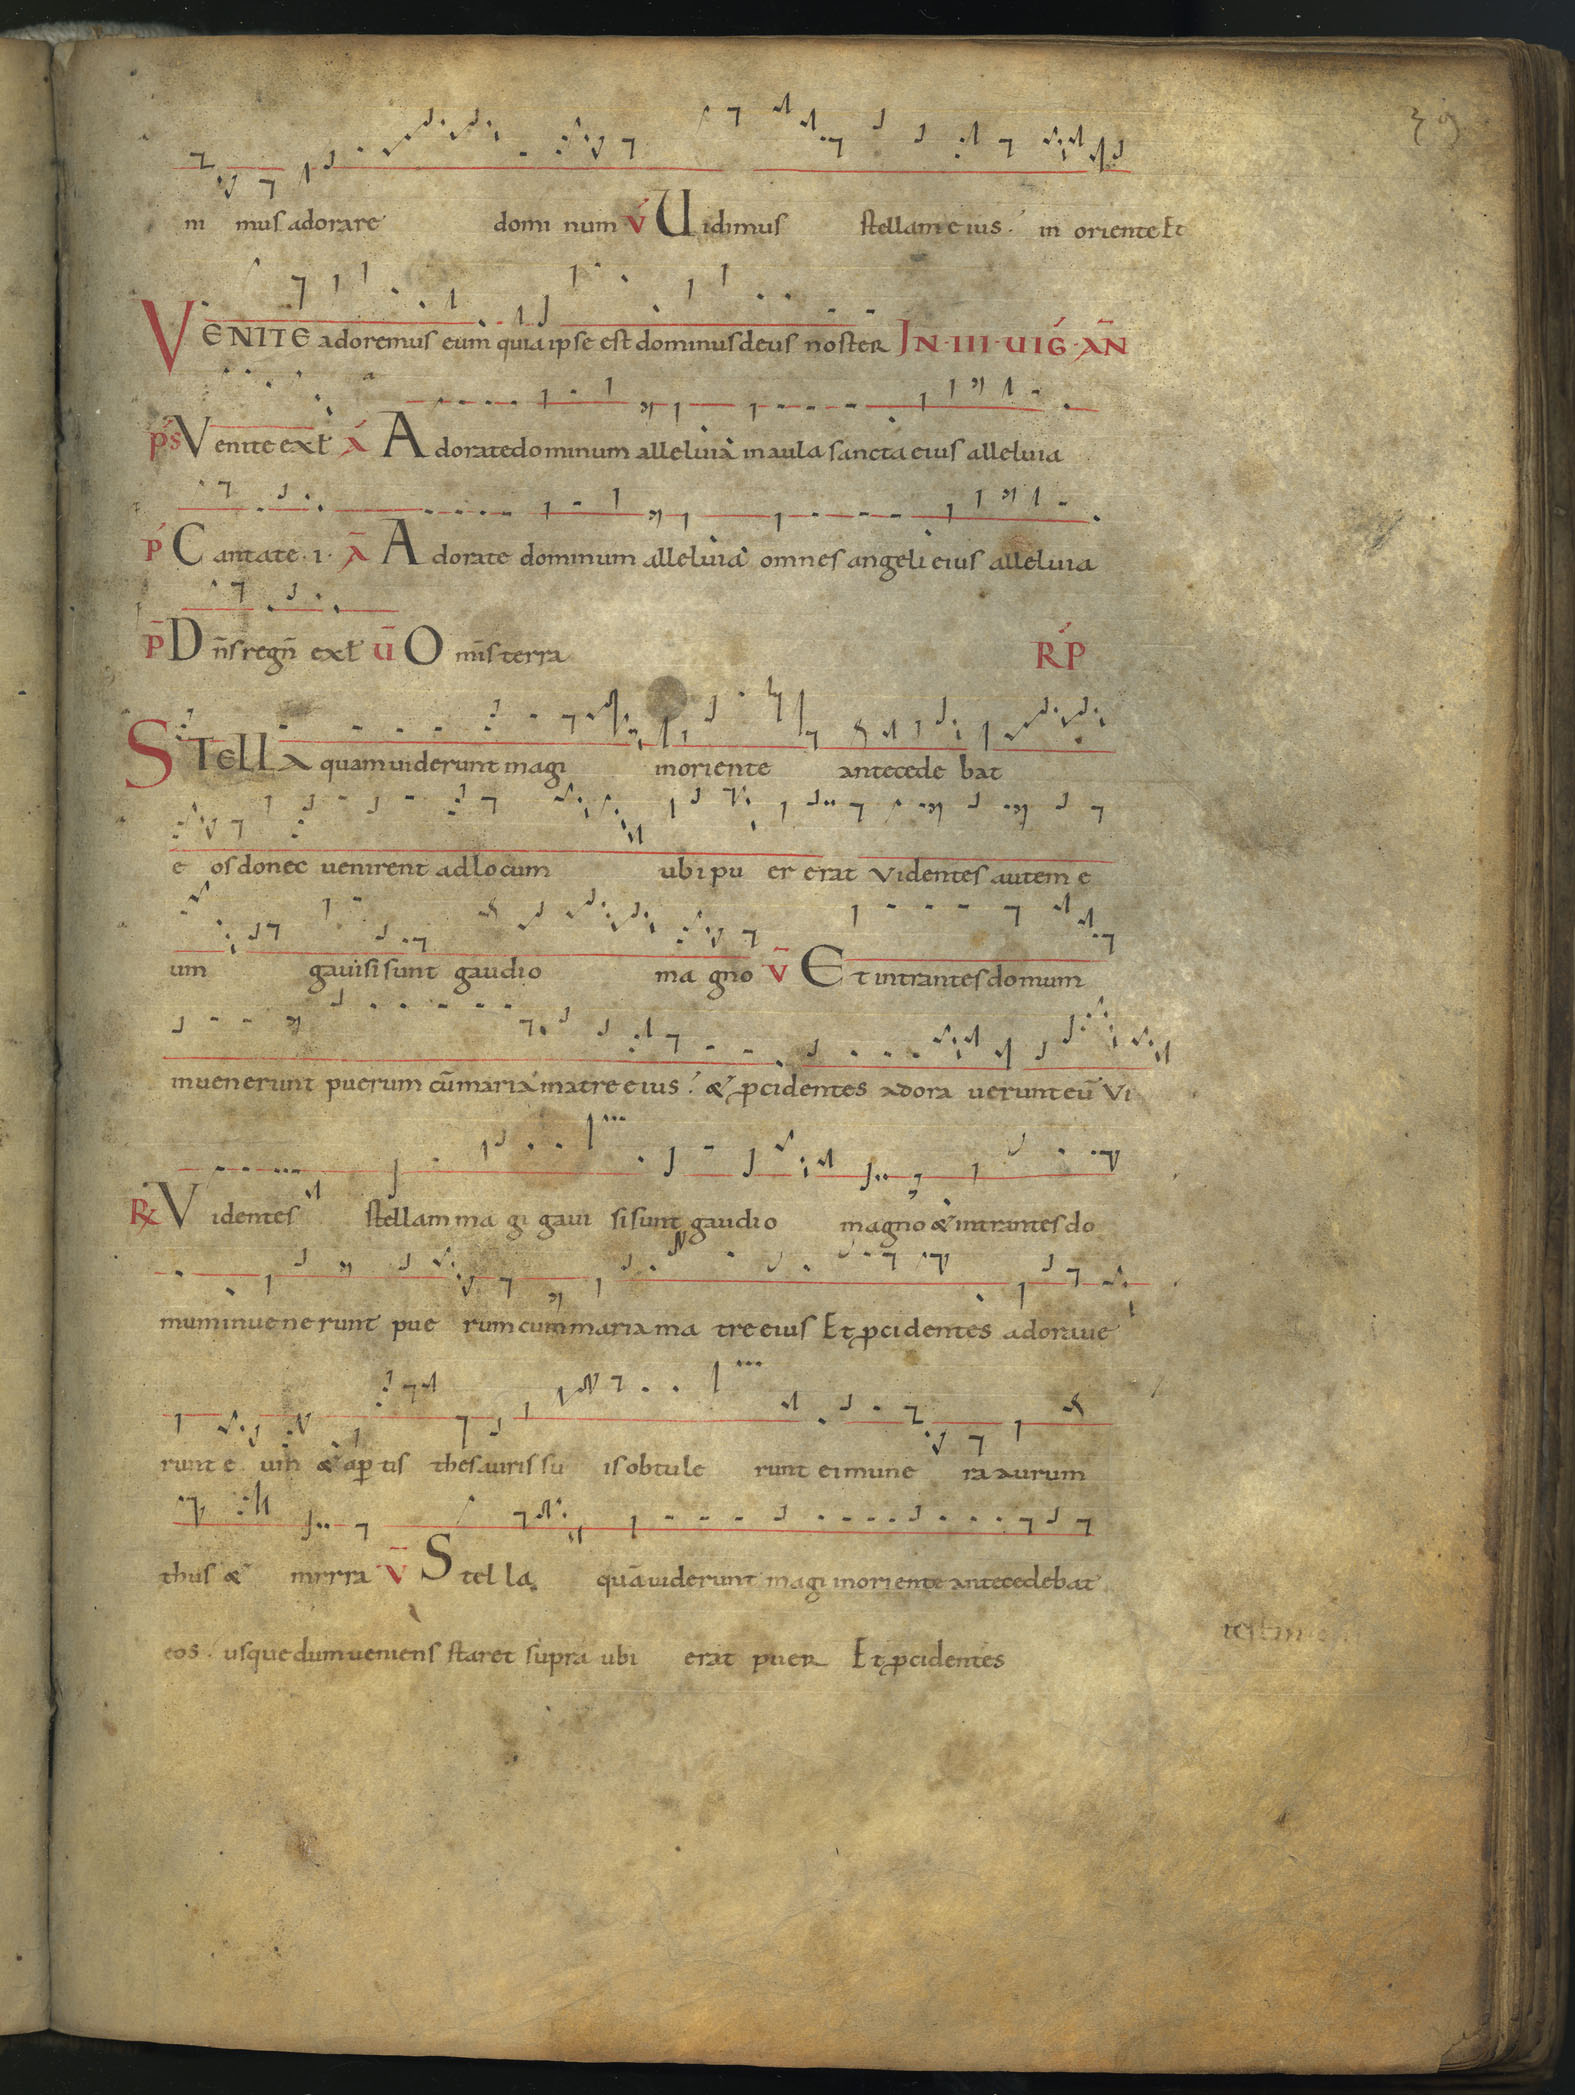 39
ni mus adorare domi num v́ Uidimus stellam eius. in oriente Et
VENITE adoremus eum quia ipse est dominus deus noster IN·III·UIǴ·AN̄
p̄s Venite exl̄ ā Adorate dominum alleluia in aula sancta eius alleluia
P Cantate·i· ā Adorate dominum alleluia omnes angeli eius alleluia
P̄ Dn̄s regn̄ exl̄ ū Omīs terra RP
STELLA quam uiderunt magi in oriente antecede bat
e os donec uenirent ad locum ubi pu er erat Videntes autem e
um gauisi sunt gaudio ma gno v̄ Et intrantes domum
inuenerunt puerum cū maria matre eius. & ꝓcidentes adora uerunt eū Vi
℞ Videntes stellam ma gi gaui si sunt gaudio magno & intrantes do
mum inuenerunt pue rum cum maria ma tre eius Et ꝓcidentes adoraue
runt e um & aꝑtis thesauris su is obtule runt ei mune ra aurum
thus & mirra v̄ Stella quā uiderunt magi in oriente antecedebat
eos. usque dum ueniens staret supra ubi erat puer Et ꝓcidentes